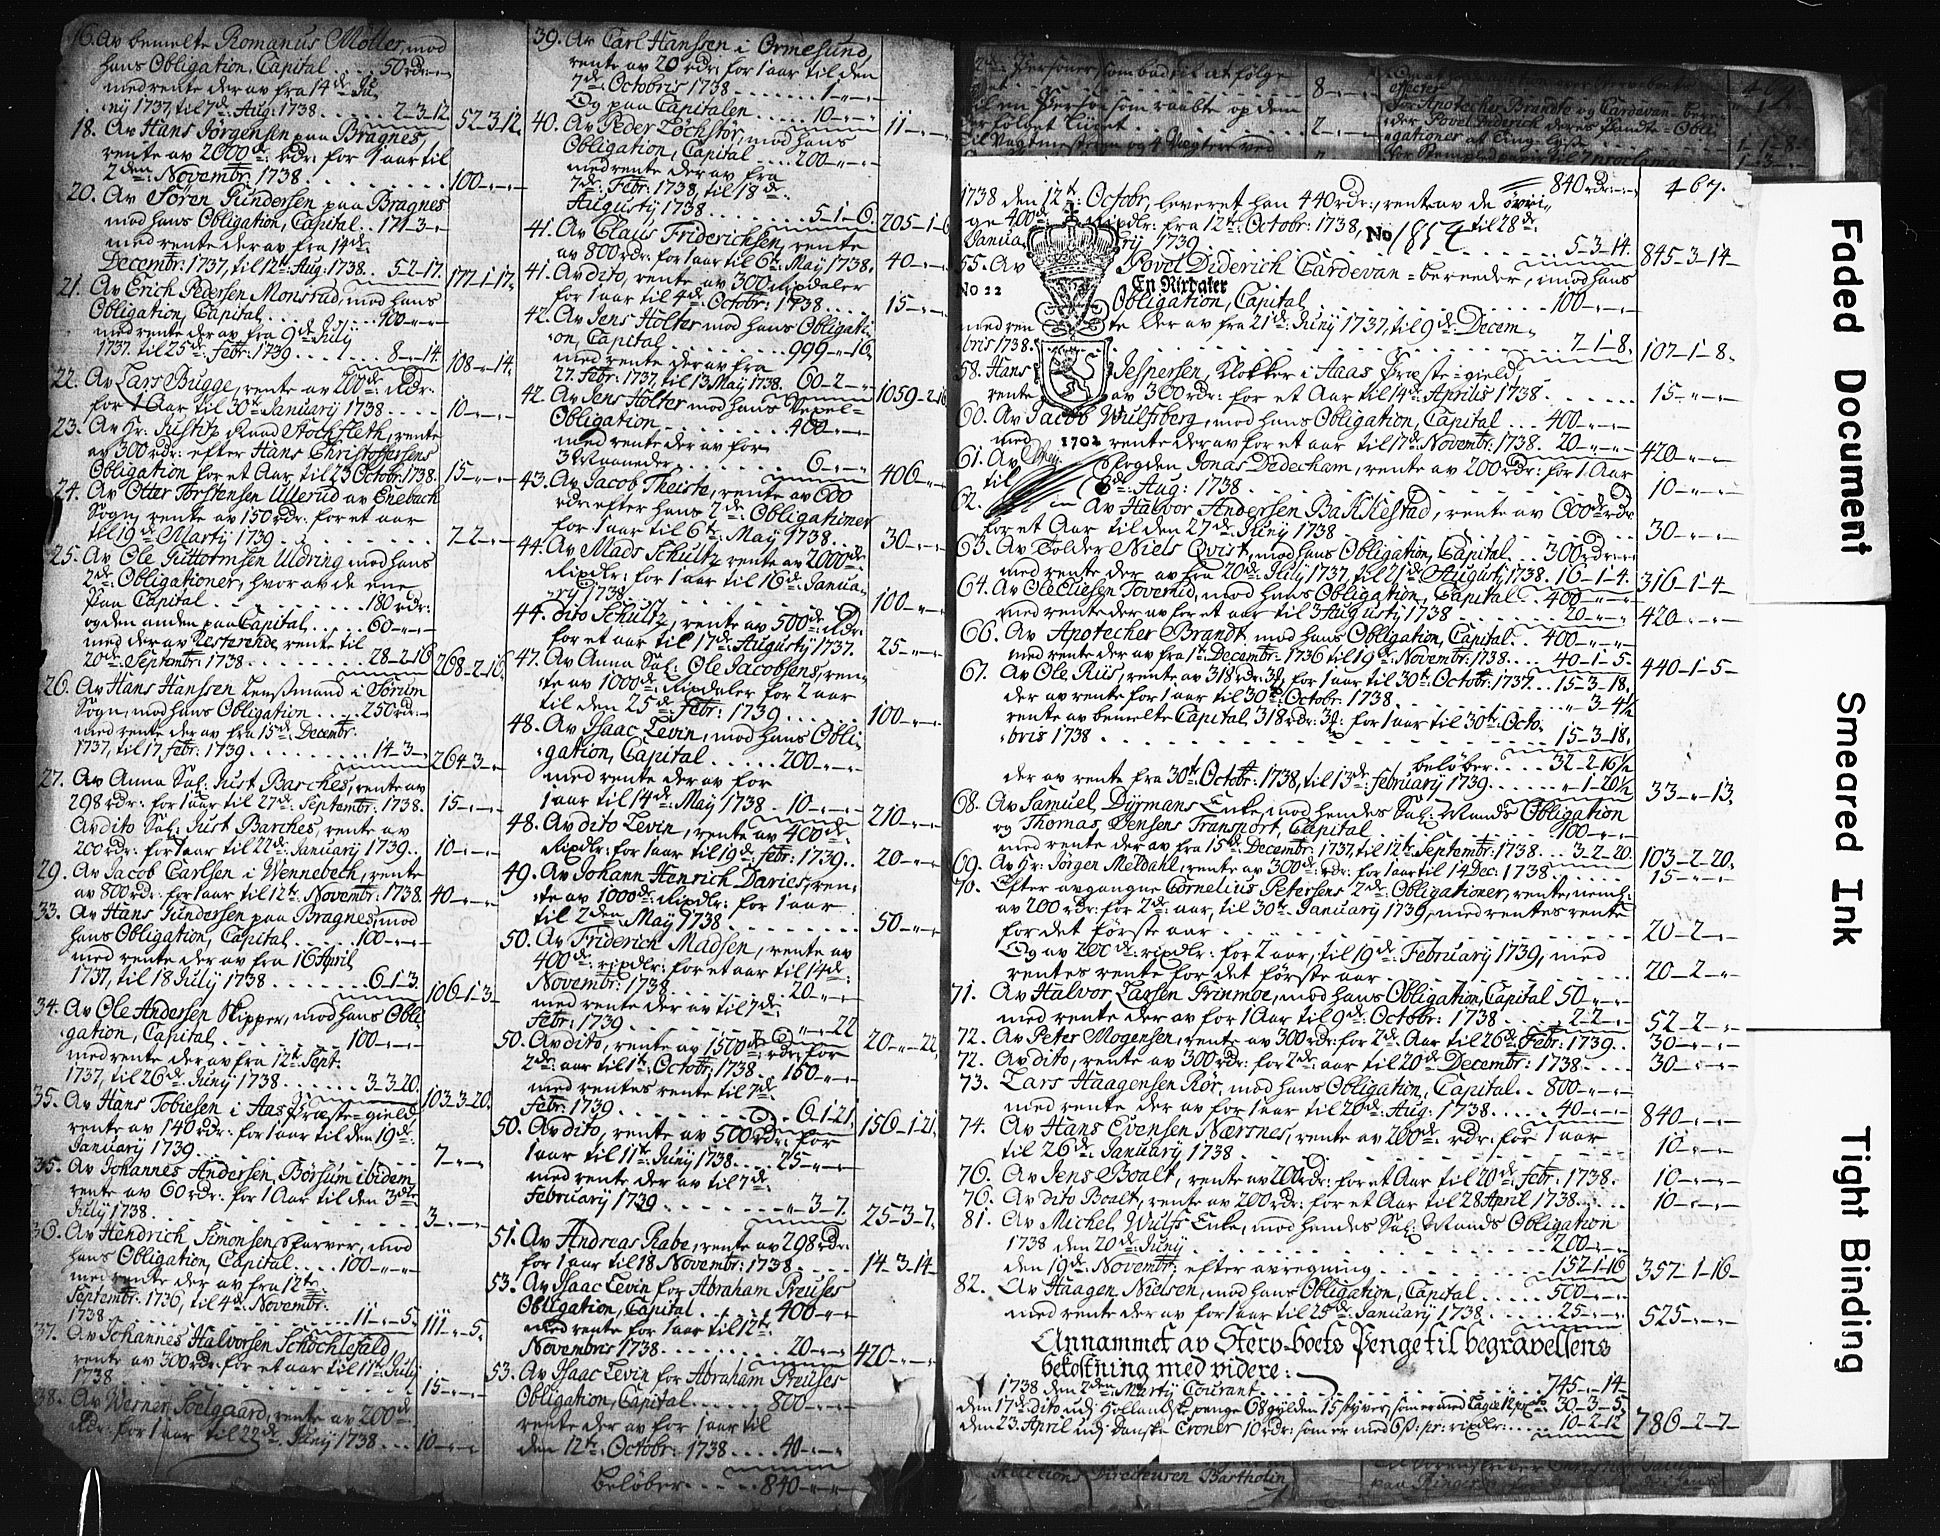 16. Av bemelte Romanus Møller, mod
hans Obligation, Capital . . . . 50 rdr: -„-
med rente der av fra 14de Ju,
nÿ 1737, til 7de Aug: 1738 . . . . 2-3-12. 52-3-12.
18. Av Hans Jørgensen paa Bragnes,
rente av 2000de: rdr: for 1 aar til
2den: Novembr: 1738. . . . . . 100-„-„-
20. Av Søren Gundersen paa Bragnes
mod hans Obligation, Capital . . 171-3-„-
med rente der av fra 14de:
Decembr: 1737, til 12te: Aug: 1738. . 5-2-17. 177-1-17.
21. Av Erich Pedersen Monstad, mod hans
Obligation, Capital . . . . . 100-„-„-
med rente der av fra 9de: Julÿ
1737. til 25de: Febr: 1739 . . . . 8-„-14. 108-„-14.
22. Av Lars Bugge, rente av 200de: Rdr:
for 1 Aar til 30te: Januarÿ 1738. . . . 10-„-„-
23. Av Hr: Justitz Raad Stockfleth, rente
av 300 rdr: efter Hans Christophersens
Obligation for et Aar, til 23 Octobr: 1738. 15-„-„-
24. Av Otter Torstensen Ullerud av Enebach
Sogn, rente av 150 rdr: for et aar
til 19de: Martÿ 1739. . . . . . 7-2-„-
25. Av Ole Guttormsen Uldring mod hans
2de: Obligationer, hvor av de ene
paa Capital . . . . . . 180 rdr:
og den anden paa Capital . . . . 60-„-„-
med der av Resterende rente til
20de: Septembr: 1738 . . . . . 28-2-16 268-2-16.
26. Av Hans Hanssen Lensmand i Sørum
Sogn, mod hans Obligation . . . 250 rdr: -„-
med rente der av fra 15de: Decembr:
1737, til 17 febr: 1739 . . . . 14-3-„- 264-3-„-
27. Av Anna Sal: Just Barches, rente av
298 rdr: for 1 aar til 27de: Septembr: 1738. 15-„-„-
Av dito Sal: Just Barches, rente av
200 rdr: for 1 aar til 22de: Januarÿ 1739. . 10-„-„-
29. Av Jacob Carlsen i Wennebech, rente
av 800 rdr: for 1 aar til 12te: Novembr: 1738. 40-„-„-
33. Av Hans Gundersen paa Bragnes, mod
hans Obligation, Capital . . . 100-„-„-
med rente der av fra 16 April
1737, til 18 Julÿ 1738 . . . . 6-1-3. 106-1-3-
34. Av Ole Andersen Skipper, mod hans Obli-
gation, Capital . . . . . . 100-„-„-
med rente der av fra 12te: Sept:
1737, til 26de: Junÿ 1738 . . . . 3-3-20. 103-3-20.
35. Av Hans Tobiesen i Aas Præste-gield
rente av 140 rdr: for 1 aar til den 19de:
Januarÿ 1739. . . . . . 7-„-„-
35. Av Johannes Andersen, Borsum ibidem
rente av 60 rdr: for 1 Aar til den 3die
Julÿ 1738. . . . . . 3-„-„-
36. Av Hendrich Simonsen, mod
hans Obligation, Capital. . . . 100-„-„-
med rente der av fra 12te:
Septembr: 1736, til 4de: Novembr:
1738 . . . . . . 11-„-5. 111-„-5.
37. Av Johannes Halvorsen
rente av 300 rdr: for et aar til 17te: Julÿ
1738 . . . . . . 15-„-„-
38. Av Werner Soelgaard, rente av 200de:
rdr: for 1 aar til 22de: Junÿ 1738 . . . 10-„-„-
39. Av Carl Hanssen i Ormesund,
rente av 20 rdr: for 1 aar til den
7de: Octobris 1738 . . . . . 1-„-„-
Og paa Capitalen . . . . . 10-„-„- 11-„-„-
40. Av Peder Lochstør, mod hans
Obligation, Capital . . . . 200-„-„-
med rente der av fra
7de: Febr: 1738, til 18de:
Augustÿ 1738 . . . . . . 5-1-6. 205-1-6
41. Av Claus Friderichsen, rente
av 800 rdr: for 1 aar til 6te: Maÿ 1738. 40-„-„-
41. Av dito, rente av 300 rixdaler
for 1 aar til 4de: Octobr: 1738 . . . 15-„-„-
42. Av Jens Holter mod hans Obligati-
on, Capital . . . . . . 999-„-16.
med rente der av fra
27. Febr: 1737, til 13 Maÿ 1738. 60-2-„- 1059-2-16
42. Av Jens Holter mod hans Vexel-
Obligation . . . . . . 400-„-„-
med rente der av for
3 Maaneder . . . . . . 6-„-„- 406-„-„-
43. Av Jacob Theiste, rente av 600
rdr: efter hans 2de: Obligationer
for 1 aar til 6te: Maÿ 1738 . . . 30-„-„-
44. Av Mads Schultz, rente av 2000de:
Rixdlr: for 1 aar til 16de: Janua-
rÿ 1738. . . . . . 100-„-„-
44. dito Schultz, rente av 500de: Rdr:
for et aar til 17de: Augustÿ 1737. 25-„-„-
47. Av Anna Sal: Ole Jacobsens, ren-
te av 1000de: Rixdaler for 2 aar
til den 25de: Febr: 1739 . . . . 100-„-„-
48. Av Isaac Levin, mod hans Obli-
gation, Capital . . . . . 200-„-„-
med rente der av for
1 aar til 14de: Maÿ 1738 . 10-„-„- 210-„-„-
48. Av dito Levin, rente av 400de:
Rixdlr: for 1 aar til 19de: febr: 1739. . 20-„-„-
49. Av Johann Henrich Daries, ren-
te av 1000de: Rixdlr: for 1 aar
til 2den Maÿ 1738 . . . . . 50-„-„-
50. Av Friderich Madsen, rente av
400de: rixdlr: for et aar til 14de:
Novembr: 1738 . . . . . 20-„-„-
med rente der av til 7de:
Febr: 1739 . . . . . . „-„-22
50. Av dito, rente av 1500de: rdr: for 20-„-22.
2de: aar til 1te: Octobr: 1738 . . 150-„-„-
med rentes rente til 7de:
Febr: 1739 . . . . . . 6-1-21. 156-1-21.
50. Av dito, rente av 500 rdr: for
1 aar til 11te: Junÿ 1738 . . . 25-„-„-
med rente der av til 7de:
Februarÿ 1739 . . . . . . „-3-7. 25-3-7.
51. Av Andreas Rabe, rente av 298 rdr:
for 1 aar til 18 Novembr: 1738 . . . . 14-3-14
53. Av Isaac Levin for Abraham Preuses
Obligation, Capital . . . . . 400-„-„-
med rente for 1 aar til 12te:
Novembris 1738 . . . . . . 20-„-„- 420-„-„-
53. Av Isaac Levin for Abraham Preuses
Obligation, Capital . . . . . 800-„-„-
rente der av for 1 aar til
den 12te: Octobr: 1738 . . . . 40-„-„-
beløber . . . . . 840-„-„-
Personer, som bad til at følge
8-„-„-
som raabte op dem
2-„-„-
Til Vagtmesteren og 4 Vægtere ved
for Apotecher Brandt og Cardevan-bere-
der Povel Diderich deres Pandte-Obli-
gationer at
1-1-8-
for Stemplet papir til 7 proclama
1-3-„-
840 rdr: -„- 467.
1738 den 12te: Octobr, leveret han 440 rdr:, rente av de øvri-
ge 400de: Rixdlr: fra 12te: Octobr: 1738, No 1854 til 28de:
Janua rÿ 1739 . . . . . 5-3-14. 845-3-14-
55. Av Povel Diderich Cardevan-bereeder, mod hans
No 22 En Rixdaler
Obligation, Capital . . . . . . 100-„-„-
med ren te der av fra 21de: Junÿ 1737, til 9de: Decem-
bris 1738. . . . . . 7-1-8. 107-1-8.
58. Hans Jespersen, Klokker i Aaas Præste-gield,
rente av 300 rdr: for et Aar til 14de: Aprilis 1738. . . . 15-„-„-
60. Av Jacob Wulfsberg, mod hans Obligation, Capital . . . 400-„-„-
med 1702 rente der av for et aar til 17de: Novembr: 1738. 20-„-„- 420-„-„-
61. Av Fogden Jonas Dedecham, rente av 200 rdr: for 1 Aar
til 8de: Aug: 1738 . . . . . . 10-„-„-
62. Av Halvor Andersen Bakkestad, rente av 600de rdr
for et Aar til den 27de: Junÿ 1738 . . . . . . 30-„-„-
63. Av Tolder Niels Qvist, mod hans Obligation, Capital . . 300 rdr: -„-
med rente der av fra 20de: Julÿ 1737, til 21de: Augustÿ 1738. 16-1-4. 316-1-4-
64. Av Ole Eliesen Toverud, mod hans Obligation, Capital . . 400-„-„-
med rente der av for et aar til 3 Augustÿ 1738 . . . . 20-„-„- 420-„-„-
66. Av Apotecher Brandt, mod hans Obligation, Capital . . 400-„-„-
med rente der av fra 1te: Decembr: 1736 til 19de: Novembr: 1738. . . . 40-1-5- 440-1-5-
67. Av Ole Riis, rente av 318 rdr: 3ß: for 1 aar til 30te: Octobr: 1737. . . 15-3-18.
der av rente for 1 aar til 30te: Octobr: 1738 . . . . „-3-4½
rente av bemelte Capital 318 rdr: 3ß: for 1 aar til 30te: Octo-
bris 1738 . . . . . . 15-3-18.
beløber . . . 32-2-16½
der av rente fra 30te: Octobr: 1738, til 13de: februarÿ 1739. . . . . „-1-20½ 33-„-13.
68. Av Samuel Dÿrmans Enke, mod hendes Sal: Mands Obligation
og Thomas Jensens Transport, Capital . . . . . 100-„-„-
med rente der av fra 15de: Decembr: 1737, til 12te: Septembr: 1738. . . 3-2-20. 103-2-20.
69. Av Hr: Jørgen Meldahl, rente av 300de: rdr: for 1 aar til 14 Dec: 1738 . . . . 15-„-„-
70. Efter avgangne Cornelius Petersens 2de: Obligationer, rente, neml:
av 200 rdr: for 2de: aar, til 30te: Januarÿ 1739, med rentes rente
for det første aar . . . . . . 20-2-„-
Og av 200de: rixdlr: for 2 aar, til 19de: Februarÿ 1739, med
rentes rente for det første aar . . . . . . 20-2-„-
71. Av Halvor Larsen Grinmoe, mod hans Obligation, Capital 50-„-„-
med rente der av for 1 Aar til 9de: Octobr: 1738 . . . . 2-2-„- 52-2-„-
72. Av Peter Mogensen, rente av 300 rdr: for 2de: Aar til 26de: Febr: 1739. . 30-„-„-
72. Av dito, rente av 300 rdr: for 2de: aar til 20de: Decembr: 1738. . . . 30-„-„-
73. Lars Haagensen Rør, mod hans Obligation, Capital . . 800-„-„-
med rente der av for 1 aar til 20de: Aug: 1738 . . . . 40-„-„- 840-„-„-
74. Av Hans Evensen Næsnes, rente av 200de: rdr: for 1 aar
til 26de: Januarÿ 1738 . . . . . . 10-„-„-
76. Av Jens Boalt, rente av 200 rdr: for et Aar til 20de: Febr: 1738. 10-„-„-
76. Av dito Boalt, rente av 200 rdr: for et Aar til 28 April 1738. . . . 10-„-„-
81. Av Michel Wulfs Enke, mod hendes Sal: Mands Obligation
1738 den 20de: Junÿ . . . . . . 200-„-„-
den 19de: Novembr: efter avregning . . . . . 152-1-16 357-1-16-
82. Av Haagen Nielsen, mod hans Obligation, Capital . . . 500-„-„-
med rente der av for 1 aar til 25de: Januarÿ 1738 . . . . 25-„-„- 525-„-„-
Annammet av Sterv-boets Penge til begravelsens
bekostning med videre:
1738 den 2den: Martÿ Courant . . . . . . 745-„-14-
den 17de: dito udj Hollandsk penge 68 gÿlden 15 stÿver, som er med Lagie 12 pr.Cto 30-3-5.
den 23. April udj Danske Croner 10 rdr: som er med 6ß: pr: rixdlr: . . . . 10-2-12 786-2-7-
Auctions Directeuren Bartholin
Faded Document
Smeared Ink
Tight Binding